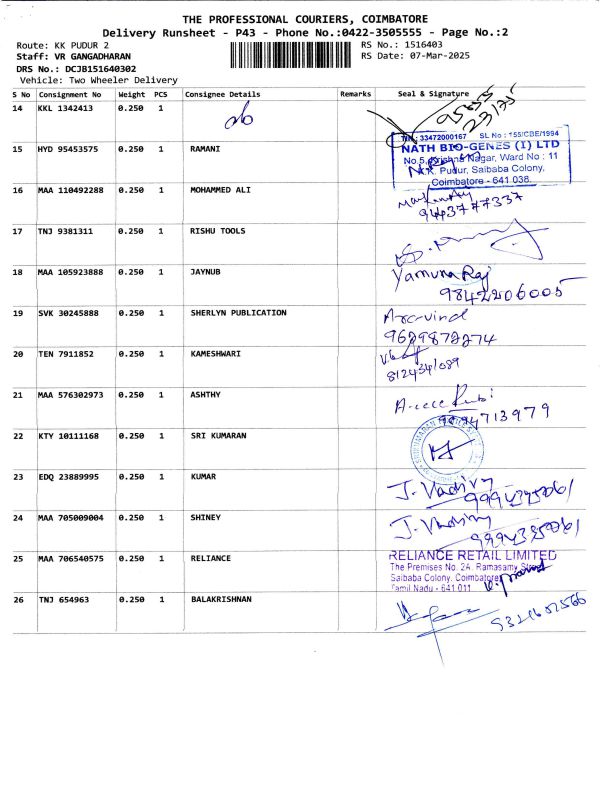 THE PROFESSIONAL COURIERS, COIMBATORE
Delivery Runsheet - P43 - Phone No.:0422-3505555 - Page No.:2
Route: KK PUDUR 2 RS No.: 1516403
Staff: VR GANGADHARAN RS Date: 07-Mar-2025
DRS No.: DCJB151640302
Vehicle: Two Wheeler Delivery
S No Consignment No Weight PCS Consignee Details Remarks Seal & Signature
14 KKL 1342413 0.250 1
TIN: 33472000167 SL No : 155/CBE/1994
15 HYD 95453575 0.250 1 RAMANI NATH BIO-GENES (I) LTD
No.5, Krishna Nagar, Ward No : 11
K.K. Pudur, Saibaba Colony,
Coimbatore - 641 038.
16 MAA 110492288 0.250 1 MOHAMMED ALI
9443777337
17 TNJ 9381311 0.250 1 RISHU TOOLS
18 MAA 105923888 0.250 1 JAYNUB Yamuna Raj
9842206005
19 SVK 30245888 0.250 1 SHERLYN PUBLICATION Aravind
9629872274
20 TEN 7911852 0.250 1 KAMESHWARI
8124341089
21 MAA 576302973 0.250 1 ASHTHY
9994713979
22 KTY 10111168 0.250 1 SRI KUMARAN
23 EDQ 23889995 0.250 1 KUMAR
24 MAA 705009004 0.250 1 SHINEY
25 MAA 706540575 0.250 1 RELIANCE RELIANCE RETAIL LIMITED
The Premises No. 2A, Ramasamy Street
Saibaba Colony, Coimbatore
Tamil Nadu - 641 011
26 TNJ 654963 0.250 1 BALAKRISHNAN